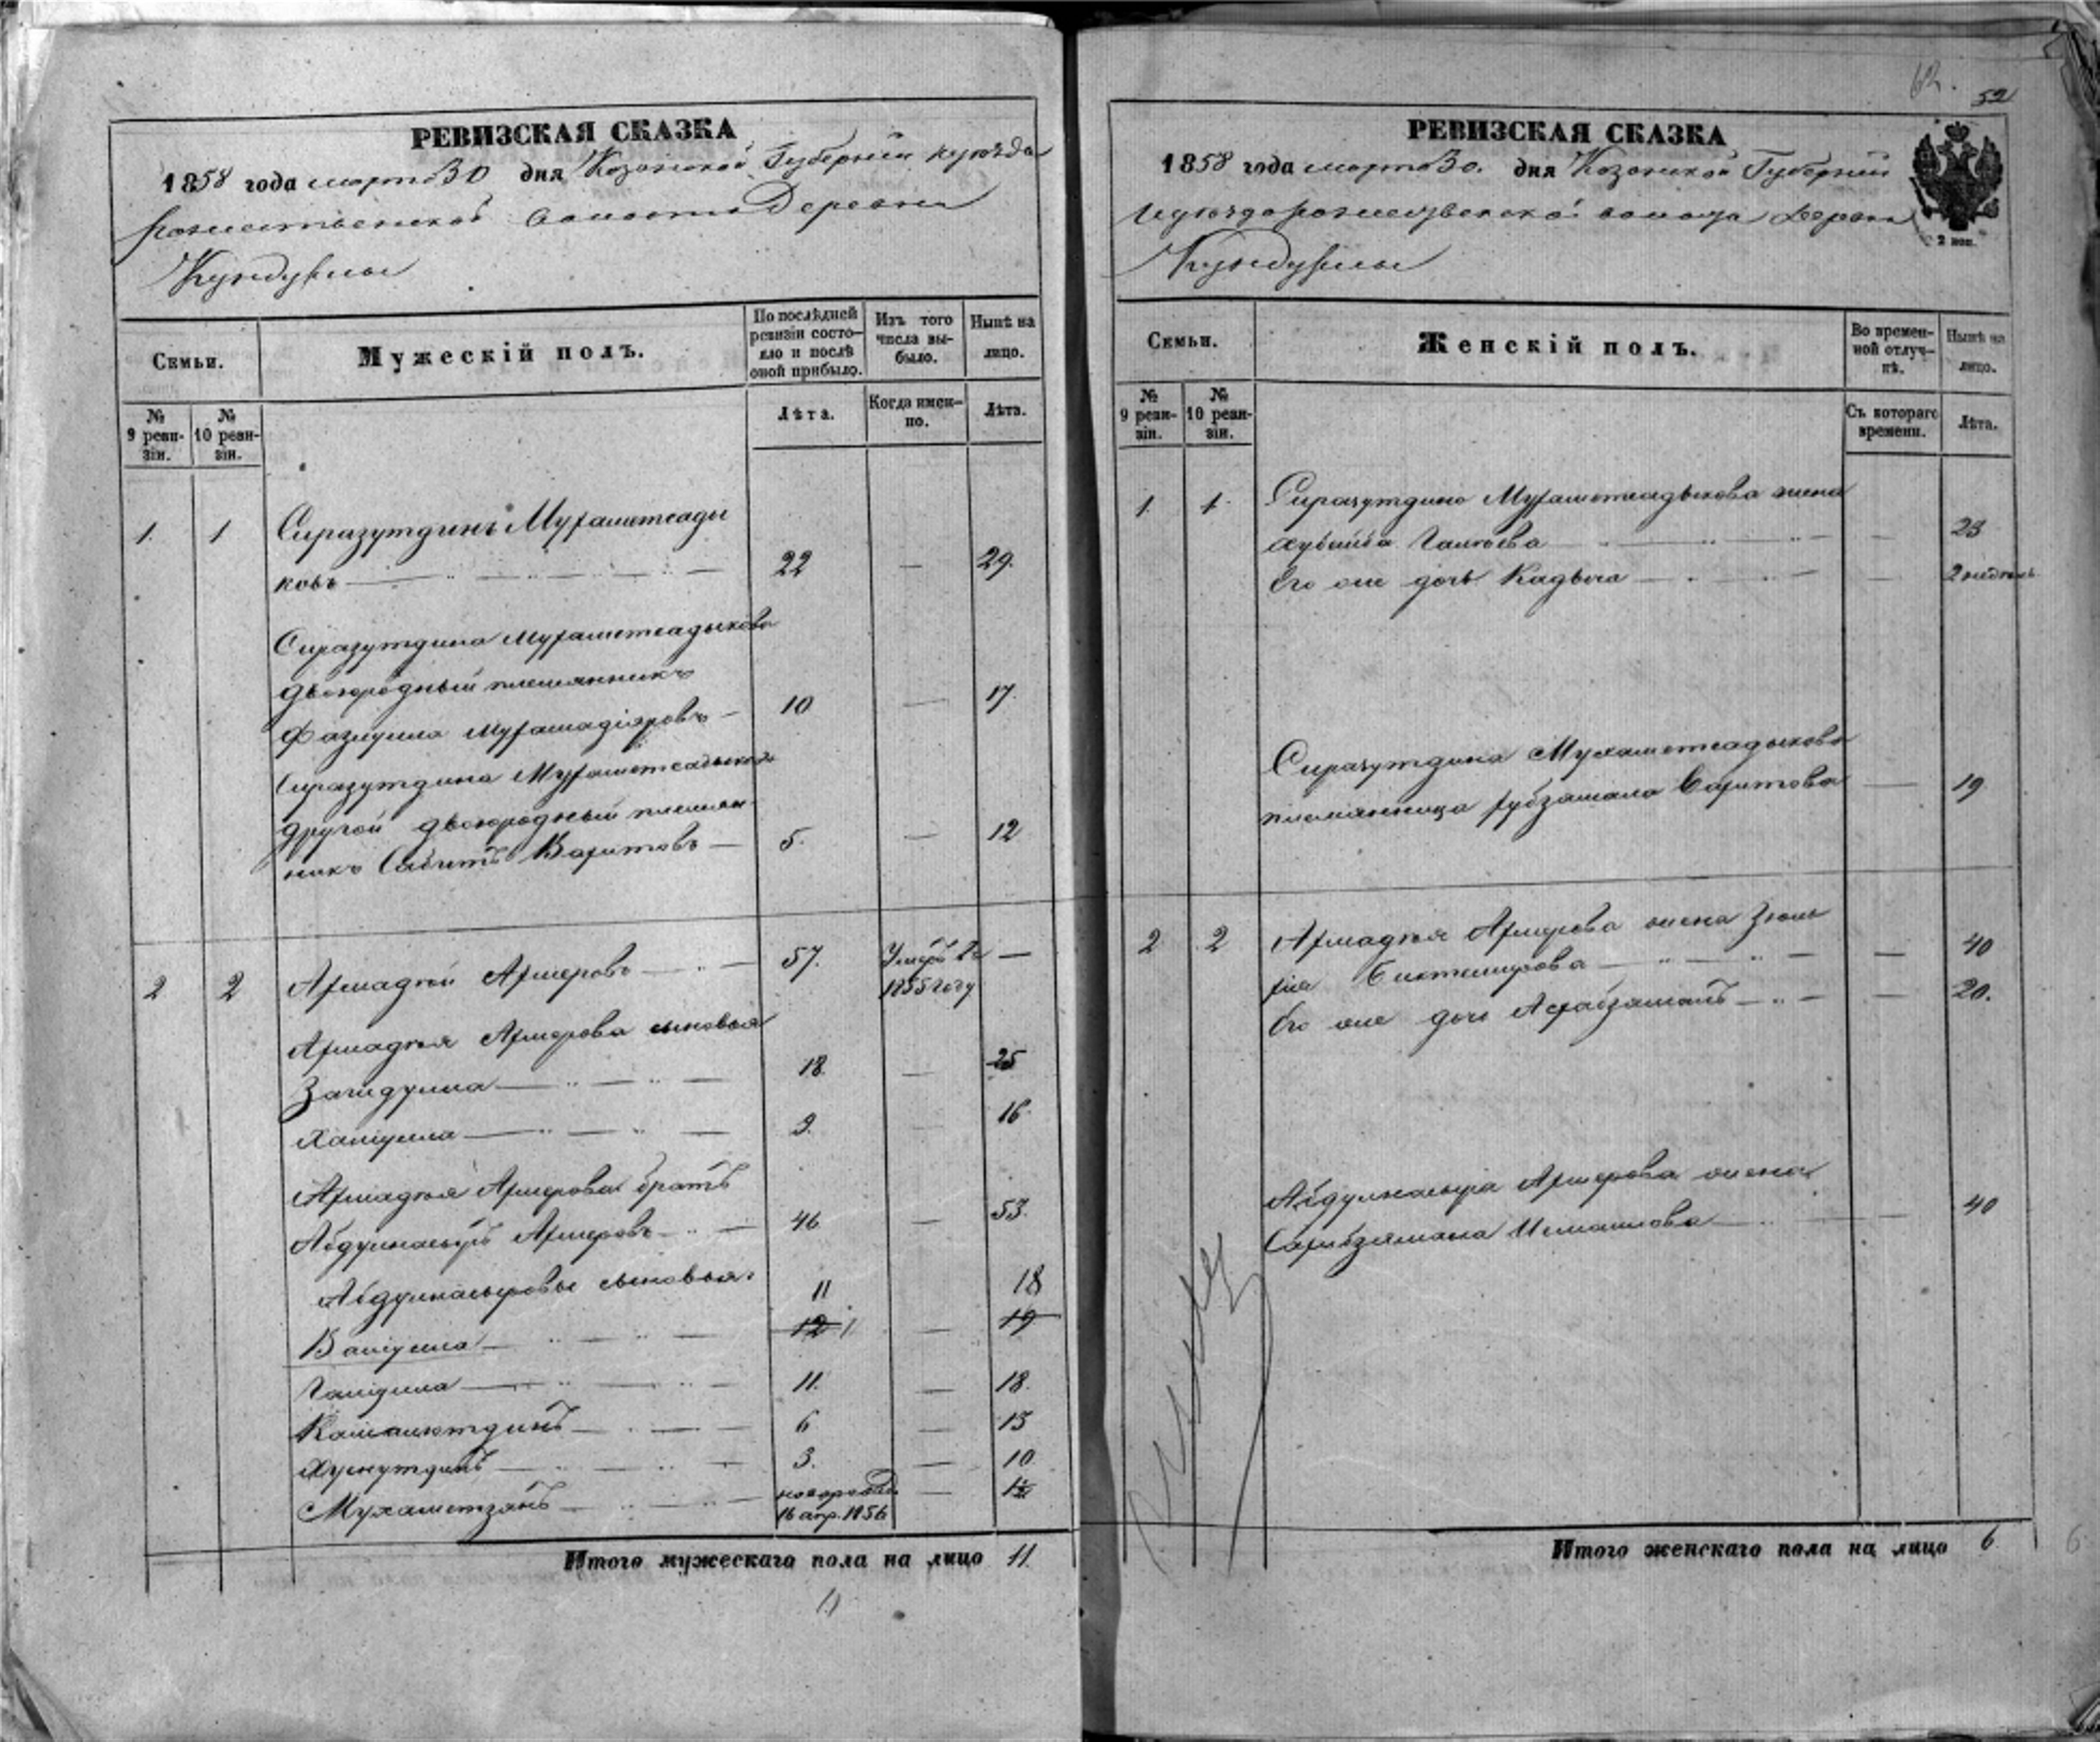 62.
52
РЕВИЗСКАЯ СКАЗКА
1858 года марта 30 дня Казанской Губернии и уезда
Рожественской волости Деревни
Кундурлы
Семьи.
Мужескій полъ.
По послѣдней ревизіи состо-
яло и послѣ оной прибыло.
Изъ того числа вы-
было.
Нынѣ на лицо.
№ 9 реви-
зіи.
№ 10 реви-
зіи.
Лѣта.
Когда имен-
но.
Лѣта.
1. 1 Сиразутдинъ Мухаметсады
ковъ 22 — 29.
Сиразутдина Мухаметсадыкова
двоюродный племянникъ
Фазлулла Мухамадіяровъ 10 — 17.
Сиразутдина Мухаметсадыкова
другой двоюродный племян
никъ Сабитъ Вахитовъ — 5. — 12
2 2 Ахмадѣй Ахмеровъ — 57. Умеръ въ —
1855 году
Ахмадѣя Ахмерова сыновья
Загидулла 18. — 25
Халіулла 9. — 16.
Ахмадѣя Ахмерова братъ
Абдулнасыръ Ахмеровъ 46 — 53.
Абдулнасыровы сыновья: 11 18
Валіулла 12 — 19
Галіулла 11. — 18.
Камалютдинъ 6 — 13
Хуснутдинъ 3. — 10.
Мухаметзянъ новорожд —
16 апр. 1856
Итого мужескаго пола на лицо 11.
11
РЕВИЗСКАЯ СКАЗКА
1858 года марта 30. дня Казанской Губерніи
и уезда Рожественской волости Деревни
Кундурлы
2 коп.
Семьи.
Женскій полъ.
Во времен-
ной отлуч-
кѣ.
Нынѣ на лицо.
№ 9 реви-
зіи.
№ 10 реви-
зіи.
Съ котораго
времени.
Лѣта.
1. 1. Сиразутдина Мухаметсадыкова жена
Хубейба Галѣева — 23
Его же дочь Кадыча — 2 недѣль
Сиразутдина Мухаметсадыкова
племянница Вахитова — 19
2 2 Ахмадѣя Ахмерова жена Зюль
Биктемирова — 40
Его же дочь — 20.
Абдулнасыра Ахмерова жена
Исмаилова — 40
Итого женскаго пола на лицо 6